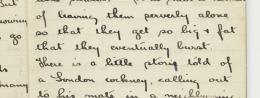 of leaving them severely alone
so that they get so big & fat
that they eventually burst.
There is a little story told of
a London cockney, calling out
to his mate in a neighbouring
go